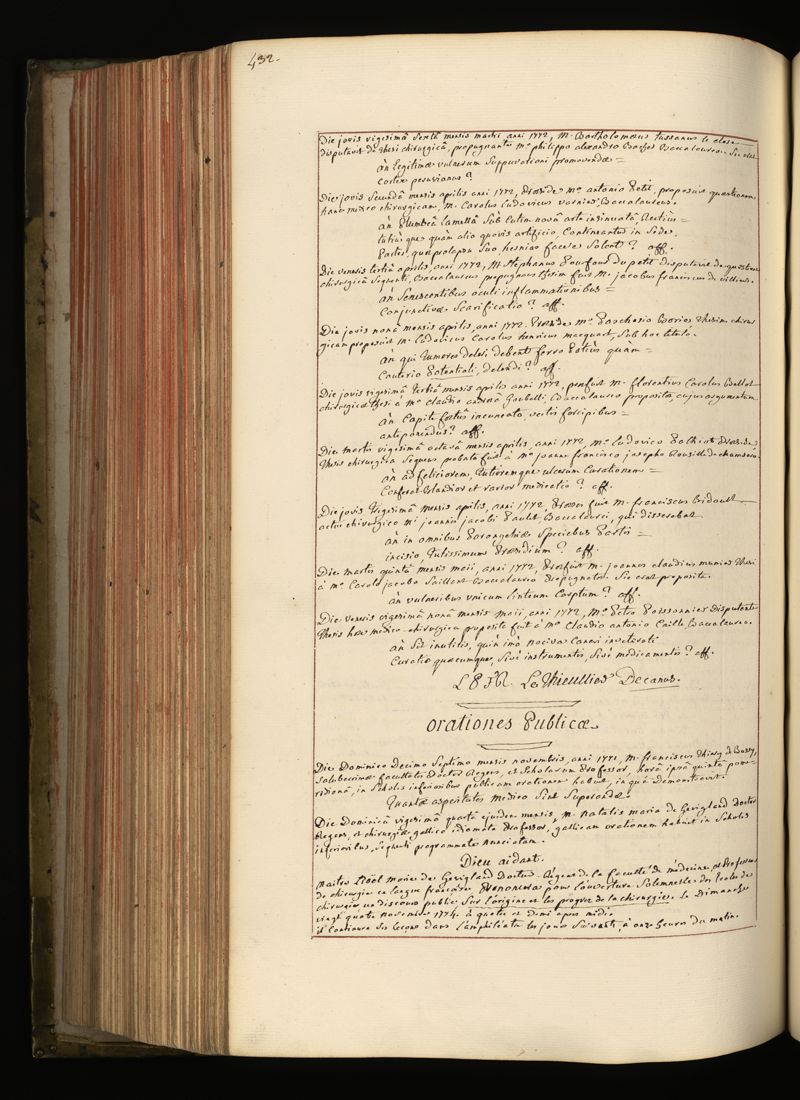 432.
Die jovis vigesimâ sextâ mensis martii anni 1772, M. Bartholomæus Tussanus le clerc
disputavit de thesi chirurgicâ, propugnante Mo philippo alexandro Baccalaureo. Sic erat
an legitimæ vulnerum suppurationi promovendæ =
cortex peruvianus ?
Die jovis secundâ mensis aprilis anni 1772, Præside Mo antonio Petit, proposuit quæstionem
hanc medico chirurgicam, M. Carolus Ludovicus varnier Baccalaureus.
an Plumbea lamella sub cutim novâ arte insinuata rectius =
tutiùsque quàm alio quovis artificio, Contineantur in sede,
Partes, quæ prolapsu suo hernias facere solent ? aff.
Die veneris tertiâ aprilis, anni 1772, M. Stephanus Pourfour du petit disputavit de quæstione
chirurgicâ sequenti, Baccalaureus propugnavit thesim fuit M. jacobus franciscus de villiers.
an senescentibus oculi inflammationibus =
Conjunctivæ scarificatio ? aff.
Die jovis nonâ mensis aprilis, anni 1772. Præside Mo Paschasio Borie thesim chirur
gicam proposuit M. Ludovicus Carolus henricus macquart, sub hoc titulo.
an qui tumores deleri debent ferro Potiùs quam =
Cauterio Potentiali, delendi ? aff.
Die jovis vigesimâ tertiâ mensis aprilis anni 1772, præfuit M. florentius Carolus Bellot
chirurgicæ thesi à Mo claudio andreâ Goubelli, Baccalaureo propositæ, cujus argumentum
an Capite foetûs incuneato, vectis forcipibus =
anteponendus ? aff.
Die martis vigesimâ octavâ mensis aprilis, anni 1772, Mo ludovico Præside
thesis chirurgica sequens probata fuit à Mo joanne francisco josepho
an ad feliciorem, tutioremque ulcerum curationem =
Conferat blandior et rarior medicatio ? aff.
Die jovis trigesimâ mensis aprilis, anni 1772, Præses fuit M. franciscus bidault
actui chirurgico Mi joannis jacobi Paulet Baccalaurei, qui disserebat
an in omnibus Paronychiæ speciebus Partis =
incisio, tutissimum Præsidium ? aff.
Die martis quintâ mensis maii, anni 1772, Præfuit M. joannes claudius munier thesi
à Mo Carolo jacobo Saillant Baccalaureo Propugnatæ. Sic erat proposita.
an vulneribus unicum linteum Carptum ? aff.
Die veneris vigesimâ nonâ mensis maii, anni 1772, Mo Petro Poissonnier Disputante
thesis hæc medico-chirurgica proposita fuit à Mo Claudio antonio Caille, Baccalaureo.
an sit inutilis, quin imò nociva Cancri inveterati
Curatio quæcumque, sivè instrumentis, sivè médicamentis ? aff.
L P J R. Le Thieullier Decanus.
orationes Publicæ.
Die Dominico Decimo septimo mensis novembris, anni 1771, M. franciscus thiery de Bussy,
saluberrimæ facultatis Doctor Regens, et Scholarum Professor, horâ ipsâ quintâ pome-
ridianâ, in scholis inferioribus publicam orationem habuit, in quâ Demonstravit.
Quantæ asperitates medico sint superandæ.
Die Dominicâ vigesimâ quartâ ejusdem mensis, M. Natalis maria de Gevigland Doctor
Regens, et chirurgiæ gallico idiomate Professor, gallicam orationem habuit in scholis
inferioribus, sequenti programmate nunciatam.
Dieu aidant.
Maitre Noël marie de Gevigland Docteur-Regent de la faculté de médecine, et Professeur
de chirurgie en langue françoise Prononcera pour l'ouverture Solemnelle des Ecoles de
chirurgie un discours public, sur l'origine et les progrès de la chirurgie, Le Dimanche
vingt quatre Novembre 1774. à quatre et Demi après midi.
il Continuera ses leçons dans L'amphiteatre les jours suivants, à onze heures du matin.